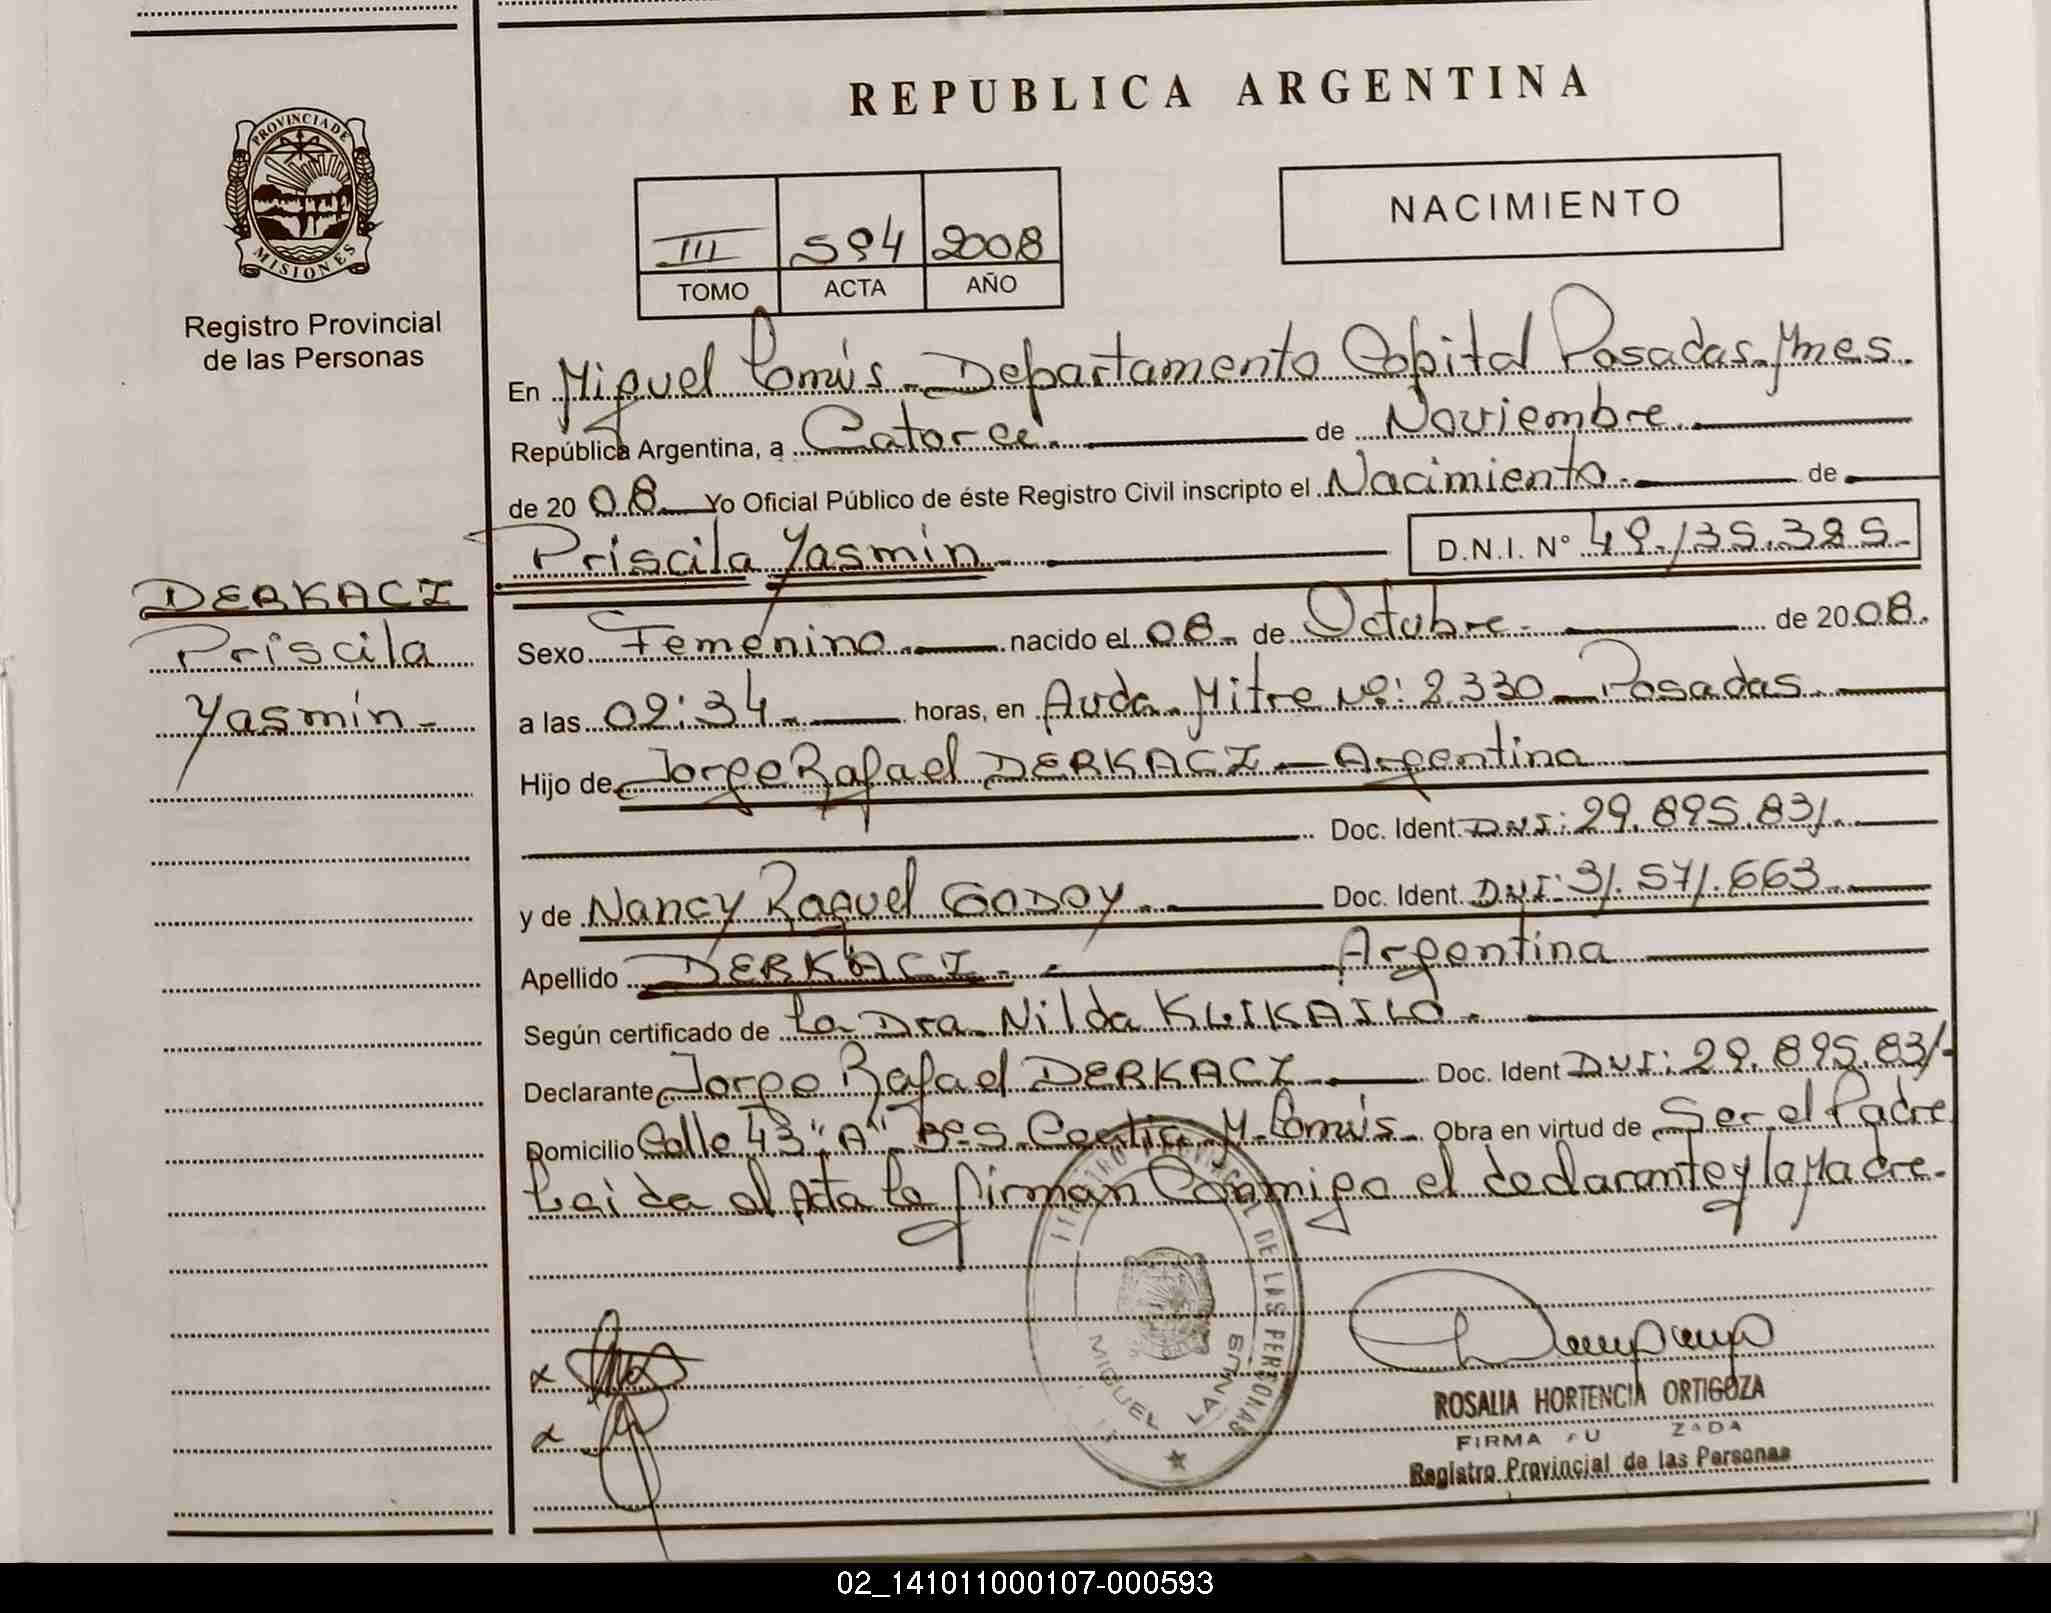 PROVINCIA DE
MISIONES
Registro Provincial
de las Personas
DERKACZ
Priscila
Yasmín.-
REPUBLICA ARGENTINA
III 594 2008
TOMO ACTA AÑO
NACIMIENTO
En Miguel Lanús - Departamento Capital Posadas - Mnes.
República Argentina, a Catorce. de Noviembre.
de 20 08. Yo Oficial Público de éste Registro Civil inscripto el Nacimiento. de
Priscila Yasmín. D.N.I. N° 49.135.385.-
Sexo Femenino. nacido el 08. de Octubre. de 20 08.
a las 02:34. horas, en Avda. Mitre Nº: 2.330 - Posadas.
Hijo de Jorge Rafael DERKACZ - Argentina
Doc. Ident. DNI: 29.895.831.
y de Nancy Raquel GODOY. Doc. Ident. DNI: 31.571.663.
Apellido DERKACZ. Argentina
Según certificado de La Dra. Nilda KLIKAILO.
Declarante Jorge Rafael DERKACZ. Doc. Ident DNI: 29.895.831-
Domicilio Calle 43 "A" Bº S. M. Lanús. Obra en virtud de Ser el Padre
Leida el Acta la firman Conmigo el declarante y la Madre.
REGISTRO PROVINCIAL DE LAS PERSONAS
MIGUEL LANUS
ROSALIA HORTENCIA ORTIGOZA
FIRMA AU ZADA
Registro Provincial de las Personas
02_141011000107-000593